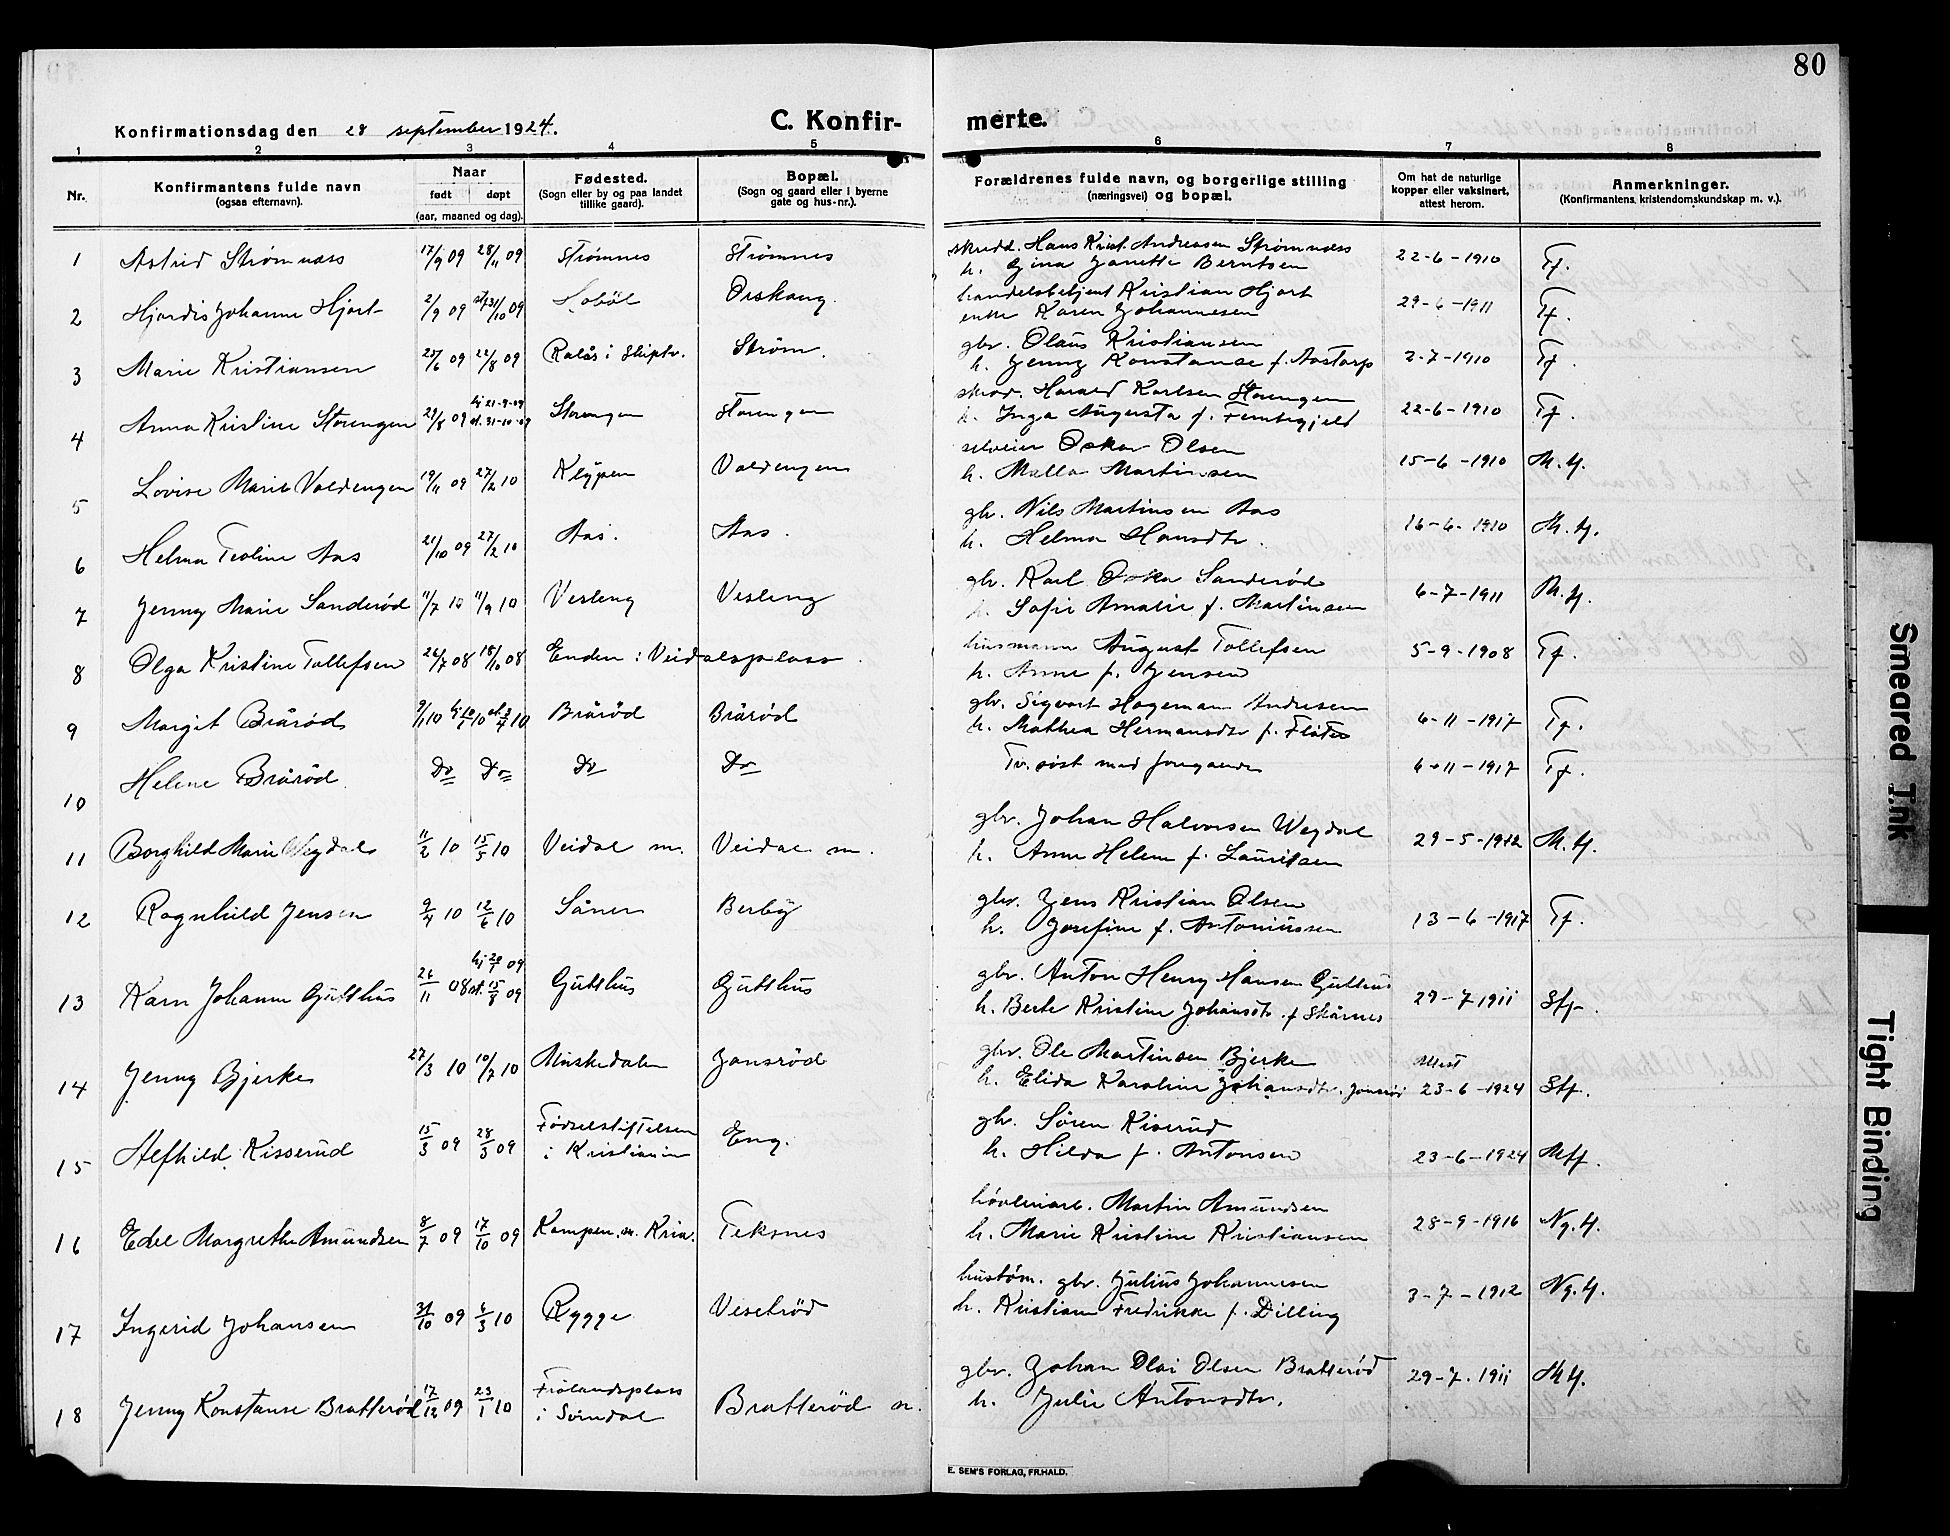 80
Konfirmationsdag den 28 september 1924. C. Konfir- merte.
1 2 3 4 5 6 7 8
Nr. Konfirmantens fulde navn (ogsaa efternavn). Naar født døpt (aar, maaned og dag). Fødested. (Sogn eller by og paa landet tillike gaard). Bopæl. (Sogn og gaard eller i byerne gate og hus-nr.). Forældrenes fulde navn, og borgerlige stilling (næringsvei) og bopæl. Om hat de naturlige kopper eller vaksinert, attest herom. Anmerkninger. (Konfirmantens kristendomskundskap m. v.).
1 Astrid Strømnæss 17/9 09 28/11 09 Strømnes Strømnes Hans Krist. Andreassen Strømnæss 22-6-1910 Tf.
h. Gina Janette Berntsen
2 Hjørdis Johanne Hjort 2/9 09 31/10 09 Orskaug handelsbetjent Kristian Hjort 29-6-1911 Tf.
enke Karen Johannesen
3 Marie Kristiansen 22/8 09 Strøm. gbr. Olaus Kristiansen 2-7-1910 Tf.
h. Jenny Konstanse f. Aastorp
4 Anna Kristine Storengen 29/8 09 hj 21-9-09 st. 31-10-09 Storengen Storengen Harald Karlsen Storengen 22-6-1910 Tf.
h. Inga Augusta f.
5 Lovise Marie Voldengen 19/11 09 27/2 10 Klypen Voldengen selveier Oskar Olsen 15-6-1910 M.H.
h. Malla Martinsen
6 Helma Teoline Aas 21/10 09 27/2 10 Aas. Aas. gbr. Nils Martinsen Aas 16-6-1910 M.H.
h. Helma Hansdtr.
7 Jenny Marie Sanderød 11/7 10 11/9 10 Vesleng Vesleng gbr. Karl Oskar Sanderød 6-7-1911 M.H.
h. Sofie Amalie f. Martinsen
8 Olga Kristine Tollefsen 26/7 08 18/10 08 Enden i Veidalsplass. husmann August Tollefsen 5-9-1908 Tf.
h. Anne f. Jensen
9 Margit Brårød 9/1 10 Brårød Brårød gbr. Sigvart Hageman Andresen 6-11-1917 Tf.
h. Mathea Hermansdtr f.
10 Helene Brårød Do Do Do Do Tv. søst med foregaaende 6-11-1917 Tf.
11 Borghild Marie Wegdal 11/2 10 15/5 10 Veidal m. Veidal m. gbr. Johan Halvorsen Wegdal 29-5-1912 M.H.
h. Anne Helene f. Lauritsen
12 Ragnhild Jensen 9/4 10 12/6 10 Såner Berby gbr. Jens Kristian Olsen 13-6-1917 Tf.
h. Josefine f. Antoniussen
13 Karn Johanne Gutthus 26/11 08 st. 15/8 09 Gutthus Gutthus gbr. Anton Henry Hansen Gutthus 29-7 1911 Stf.
h. Berte Kristine Johansdtr. f Skårnes
14 Jenny Bjerke 27/3 10 10/7 10 Muskedalen Jansrød gbr. Ole Martinsen Bjerke attest
h. Elida Karoline Johansdtr. Jonsrød 23-6-1924 Stf.
15 Alfhild Kisserud 15/3 09 28/3 09 Fødselstiftelsen i Kristiania Eng. gbr. Sören Kiserud
h. Hilda f. Antonsen 23-6-1924 Mtf.
16 Edel Margrethe Amundsen 8/7 09 17/10 09 Kampen, m. Kria. Teksnes Martin Amundsen 28-9-1916 Ng.H.
h. Marie Kristine Kristiansen
17 Ingerid Johansen 31/10 09 6/3 10 Rygge Vesetrød hustøm. gbr. Julius Johannesen 3-7-1912 Ng.H.
h. Kristiane Fredrikke f. Dilling
18 Jenny Konstanse Bratterød 17/12 09 23/1 10 Frølandsplass i Sørndal Bratterød m. gbr. Johan Olai Olsen Bratterød 29-7-1911 M.H.
h. Julie Antonsdtr.
E. SEM'S FORLAG, FR.HALD.
Smeared Ink
Tight Binding